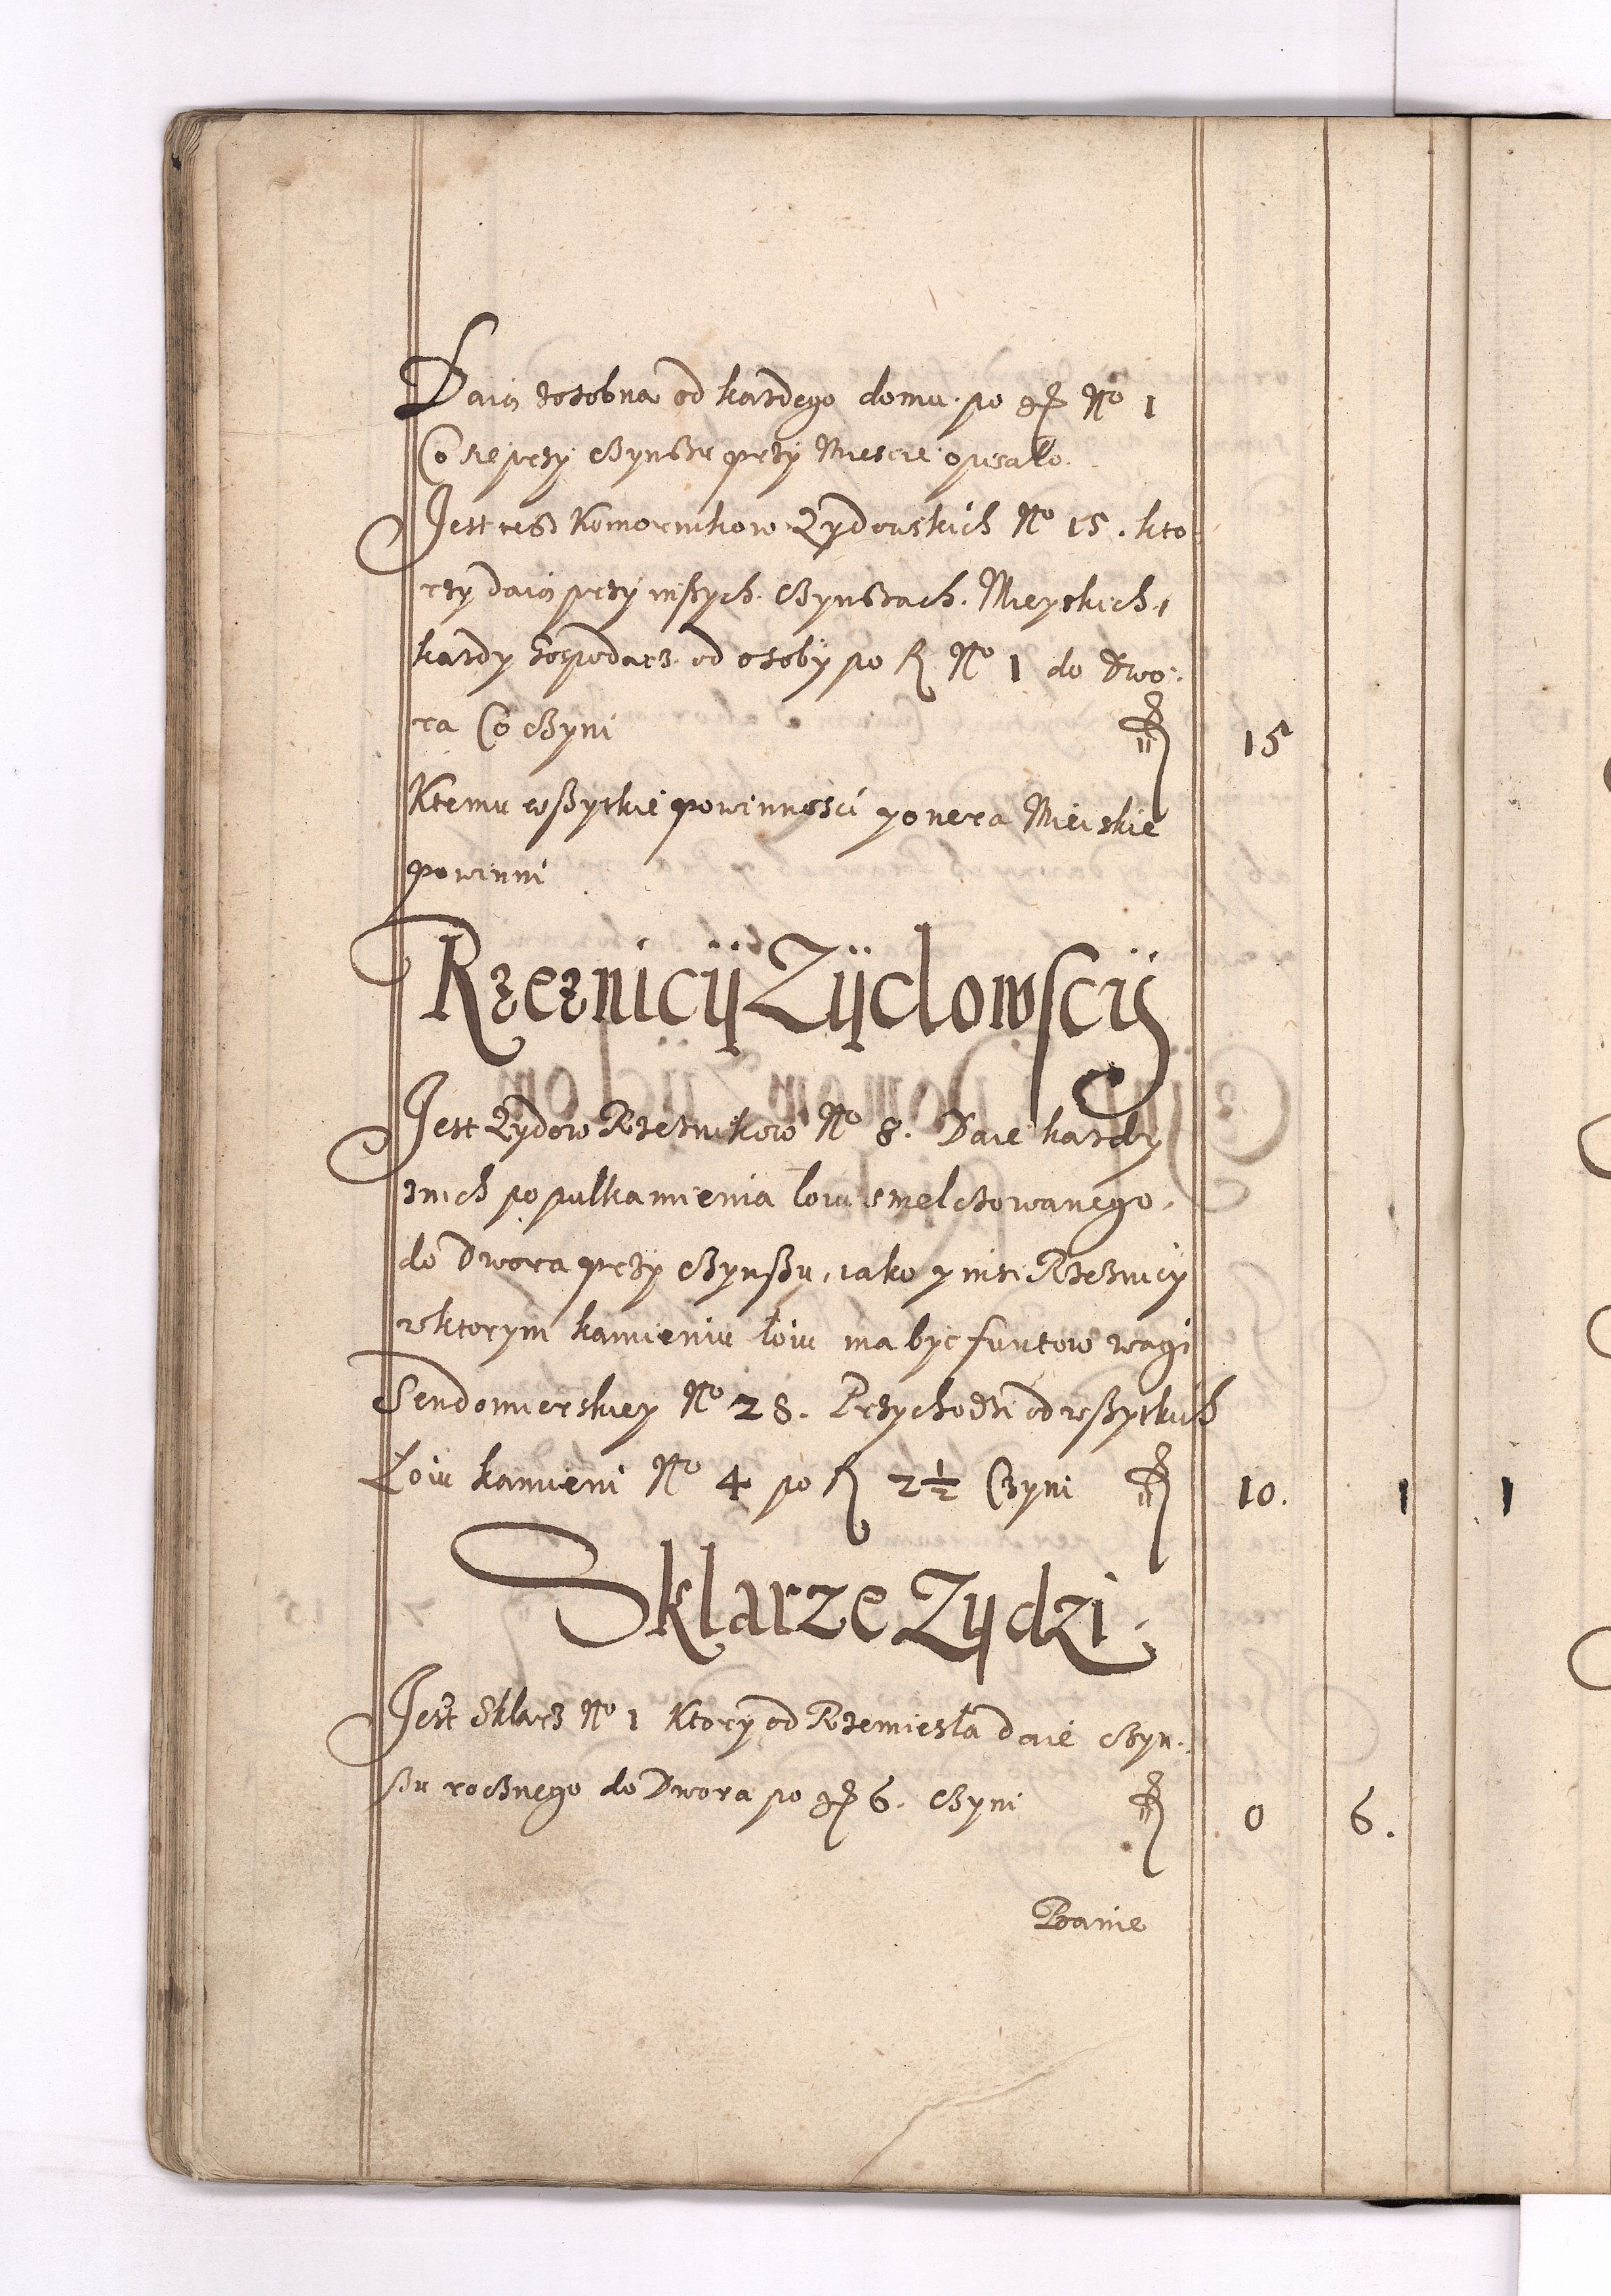 Daią zosobna od kazdego domu po gр No 1
Co sie przy czynszu przy Miescie opisało.
Jest tesz Komornikow Zydowskich No 15. kto
rzy daią przy inszych czynszach Mieyskich,
kazdy Gospodarz od osoby po fl No 1 do Dwo:
ra Co czyni fl 15
Ktemu wszytkie powinnosci y onera Mieiskie
powinni
Rzeznicÿ Zÿdowscÿ
Jest Zydow Rzeznikow No 8. Daie kazdy
znich po pulkamienia łoiu smelczowanego,
do Dwora przy czynszu, iako y insi Rzeznicy
wktorym kamieniu łoiu ma byc funtow wagi
Sendomierskiey No 28. Przychodzi od wszytkich
Łoiu kamieni No 4 po fl 2½ Czyni fl 10. 1
Sklarze Zydzi.
Jest Sklarz No 1 Ktory od Rzemiesla daie czyn:
szu rocznego do Dwora po gр 6. czyni fl 0 6.
Banie